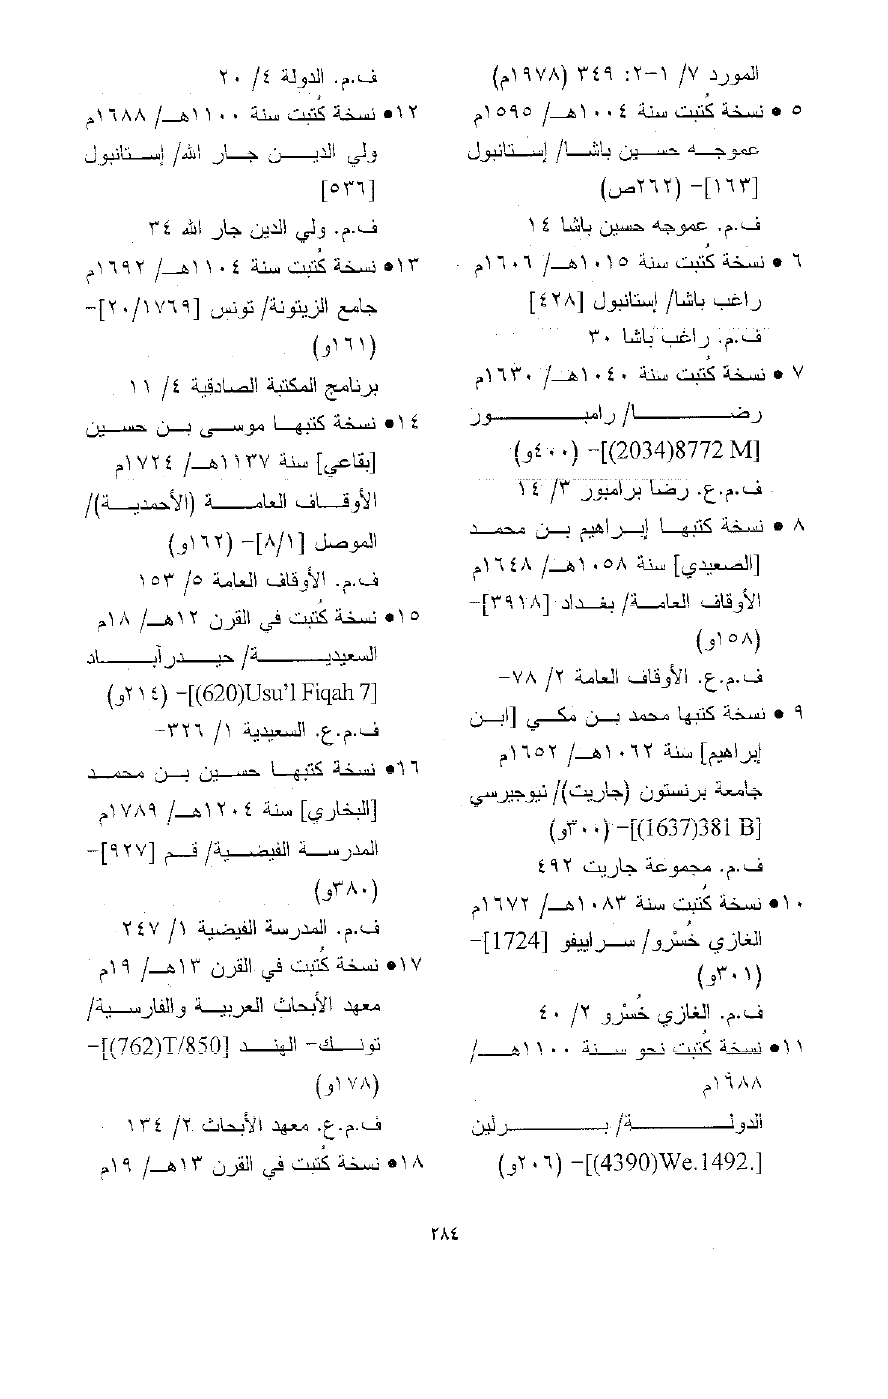 المورد ٧/ ١-٢: ٣٤٩ (١٩٧٨م)
٥ • نسخة كُتبت سنة ١٠٠٤هـ/ ١٥٩٥م
عموجه حسين باشا/ إستانبول
[١٦٣]- (٢٦٢ص)
ف.م. عموجه حسين باشا ١٤
٦ • نسخة كُتبت سنة ١٠١٥هـ/ ١٦٠٦م
راغب باشا/ إستانبول [٤٢٨]
ف.م. راغب باشا ٣٠
٧ • نسخة كُتبت سنة ١٠٤٠هـ/ ١٦٣٠م
رضا/ رامبور
[8772 M(2034)]- (٤٠٠و)
ف.م.ع. رضا برامبور ٣/ ١٤
٨ • نسخة كتبها إبراهيم بن محمد
[الصعيدي] سنة ١٠٥٨هـ/ ١٦٤٨م
الأوقاف العامة/ بغداد [٣٩١٨]-
(١٥٨و)
ف.م.ع. الأوقاف العامة ٢/ ٧٨-
٩ • نسخة كتبها محمد بن مكي [ابن
إبراهيم] سنة ١٠٦٢هـ/ ١٦٥٢م
جامعة برنستون (جاريت)/ نيوجيرسي
[381 B(1637)]- (٣٠٠و)
ف.م. مجموعة جاريت ٤٩٢
١٠• نسخة كُتبت سنة ١٠٨٣هـ/ ١٦٧٢م
الغازي خُسْرو/ سراييفو [1724]-
(٣٠١و)
ف.م. الغازي خُسْرو ٢/ ٤٠
١١• نسخة كُتبت نحو سنة ١١٠٠هـ/
١٦٨٨م
الدولة/ برلين
[We.1492.(4390)]- (٢٠٦و)
ف.م. الدولة ٤/ ٢٠
١٢• نسخة كُتبت سنة ١١٠٠هـ/ ١٦٨٨م
ولي الدين جار الله/ إستانبول
[٥٣٦]
ف.م. ولي الدين جار الله ٣٤
١٣• نسخة كُتبت سنة ١١٠٤هـ/ ١٦٩٢م
جامع الزيتونة/ تونس [٢٠/١٧٦٩]-
(١٦١و)
برنامج المكتبة الصادقية ٤/ ١١
١٤• نسخة كتبها موسى بن حسين
[بقاعي] سنة ١١٣٧هـ/ ١٧٢٤م
الأوقاف العامة (الأحمدية)/
الموصل [٨/١]- (١٦٢و)
ف.م. الأوقاف العامة ٥/ ١٥٣
١٥• نسخة كُتبت في القرن ١٢هـ/ ١٨م
السعيدية/ حيدرآباد
[Usu'l Fiqah 7(620)]- (٢١٤و)
ف.م.ع. السعيدية ١/ ٣٢٦-
١٦• نسخة كتبها حسين بن محمد
[البخاري] سنة ١٢٠٤هـ/ ١٧٨٩م
المدرسة الفيضية/ قم [٩٢٧]-
(٣٨٠و)
ف.م. المدرسة الفيضية ١/ ٢٤٧
١٧• نسخة كُتبت في القرن ١٣هـ/ ١٩م
معهد الأبحاث العربية والفارسية/
تونك- الهند [T/850(762)]-
(١٧٨و)
ف.م.ع. معهد الأبحاث ٢/ ١٣٤
١٨• نسخة كُتبت في القرن ١٣هـ/ ١٩م
٢٨٤